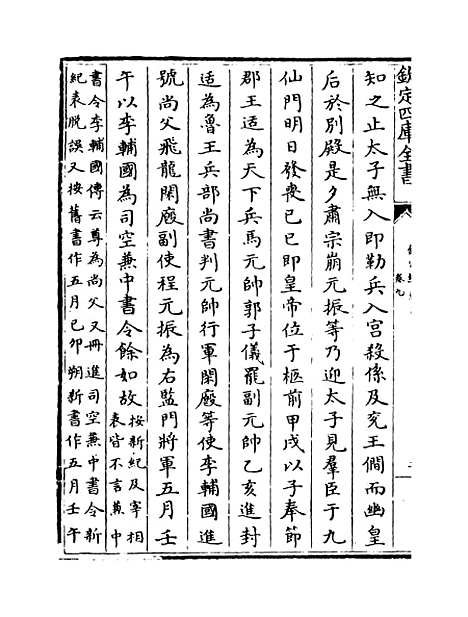 欽定四庫全書
卷九
知之止太子無入即勒兵入宫殺係及兖王僩而幽皇
后於別殿是夕肅宗崩元振等乃迎太子見羣臣于九
仙門明日發喪己巳即皇帝位于柩前甲戌以子奉節
郡王适為天下兵馬元帥郭子儀罷副元帥乙亥進封
适為魯王兵部尚書判元帥行軍閑廐等使李輔國進
號尚父飛龍閑廐副使程元振為右監門將軍五月壬
午以李輔國為司空兼中書令餘如故按新紀及宰相
表皆不言兼中
書令李輔國傳云尊為尚父又冊進司空兼中書令新
紀表脱誤又按舊書作五月己卯朔新書作五月壬午